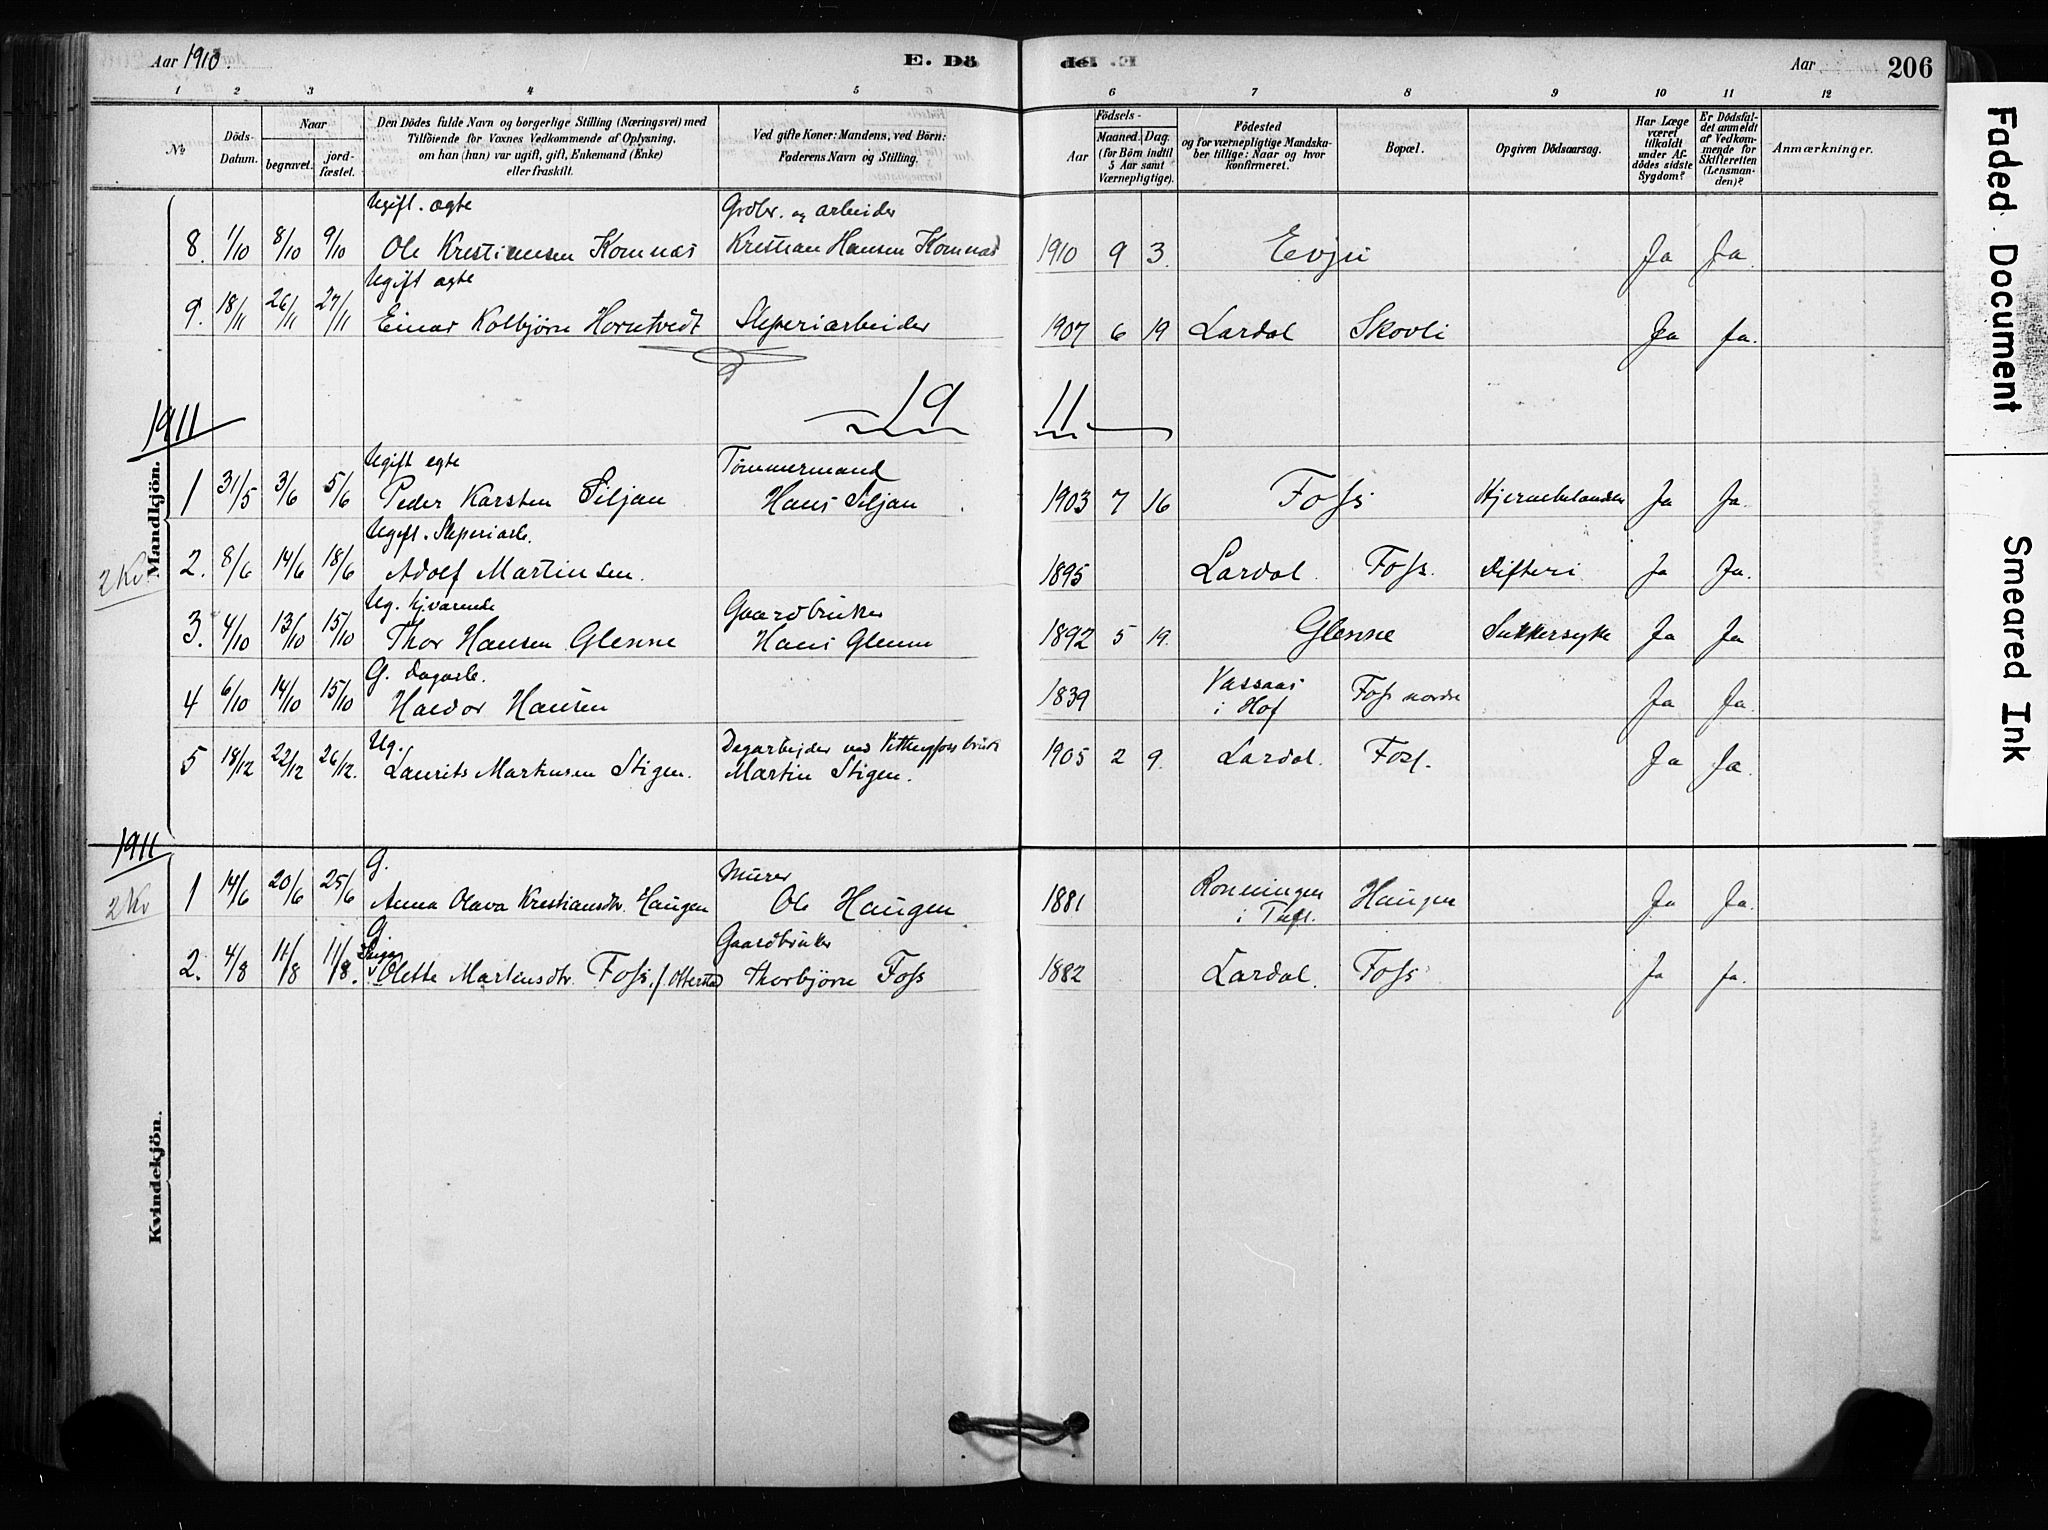 Aar 1910.
E. Dö
de. E
Aar
206
1 2 3 4 5 6 7 8 9 10 11 12
No
Döds-Datum.
Naar
begravet.
jord-fæstet.
Den Dödes fulde Navn og borgerlige Stilling (Næringsvei) med
Tilföiende for Voxnes Vedkommende af Oplysning,
om han (han) var ugift, gift, Enkemand (Enke)
eller fraskilt.
Ved gifte Koner: Mandens, ved Börn:
Faderens Navn og Stilling.
Födsels-
Aar
Maaned. Dag.
(for Börn indtil
5 Aar samt
Værnepligtige).
Födested
og for værnepligtige Mandska-
ber tillige: Naar og hvor
konfirmeret.
Bopæl.
Opgiven Dödsaarsag.
Har Læge
været
tilkaldt
under Af-
dödes sidste
Sygdom?
Er Dödsfal-
det anmeldt
af Vedkom-
mende for
Skifteretten
(Lensman-
den)?
Anmærkninger.
Ugift. ægte Grdbr. og arbeider
8. 1/10 8/10 9/10 Ole Kristiansen Komnæs Kristian Hansen Komnæs 1910 9 3. Evju Ja Ja.
Ugift ægte
9. 18/11 26/11 27/11 Einar Kolbjørn Horntvedt Sliperiarbeider 1907 6 19 Lardal Skovli Ja Ja.
1911
19 11
Mandkjön.
Ugift egte Tømmermand
1 31/5 3/6 5/6 Peder Karsten Siljan Hans Siljan 1903 7 16 Foss Ja Ja.
Ugift. Sliperiarb.
2 Kv
2. 8/6 14/6 18/6 Adolf Martinsen. 1895 Lardal. Foss. Difteri Ja Ja.
Ug. hjværende Gaardbruker
3. 4/10 13/10 15/10 Thor Hansen Glenne Hans Glenne 1892 5 19. Glenne Sukkersyke Ja Ja
G. Dagarb.
4 6/10 14/10 15/10 Haldor Hansen 1839 Vassaas i Hof Foss nordre Ja Ja.
Ug. Dagarbeider ved Vittingfoss bruk
5 18/12 22/12 26/12. Laurits Martinsen Stigen. Martin Stigen. 1905 2 9. Lardal. Foss. Ja Ja.
1911
2 Kv
G. Murer
1 14/6 20/6 25/6 Anna Olava Kristiansdtr. Haugen Ole Haugen 1881 Rønningen Haugen Ja Ja.
G Gaardbruker
2. 4/8 11/8 11/8. Olette Martinsdtr. Foss. Thorbjørn Foss 1882 Lardal. Foss Ja Ja.
Kvindekjön.
Faded Document
Smeared Ink